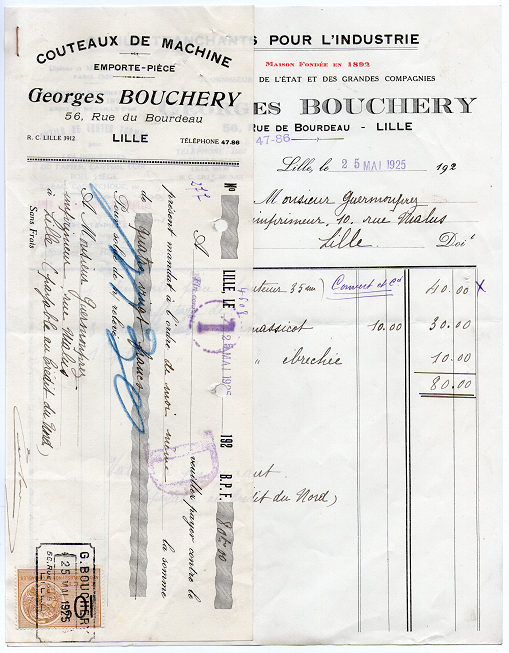 COUTEAUX DE MACHINE
EMPORTE-PIÈCE
Georges BOUCHERY
56, Rue du Bourdeau
R. C. LILLE 3912 LILLE TÉLÉPHONE 47-86
N° LILLE, LE 25 MAI 1925 192 B.P.F. 80f.00
A veuillez payer contre le
présent mandat à l'ordre de moi-même la somme
de quatre vingt francs
A Monsieur Guermonprez
imprimeur, rue Malus
à Lille (payable au Crédit du Nord)
Sans Frais
1
G. BOUCHERY
25 MAI 1925
LILLE
POUR L'INDUSTRIE
MAISON FONDÉE EN 1892
DE L'ÉTAT ET DES GRANDES COMPAGNIES
ES BOUCHERY
RUE DE BOURDEAU - LILLE
47-86
Lille, le 25 MAI 1925 192
Monsieur Guermonprez
imprimeur, 10, rue Malus
Lille. Doit
40.00 x
massicot 10.00 30.00
" ébrechée 10.00
80.00
dit du Nord)